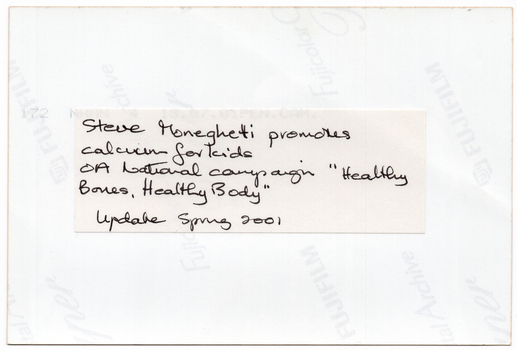 Steve Moneghetti promotes
calcium for kids
OA National campaign "Healthy
Bones, Healthy Body"
Update Spring 2001
172
FUJIFILM
Fujicolor
Archive
FUJIFILM
FUJIFILM
FUJIFILM
Archive